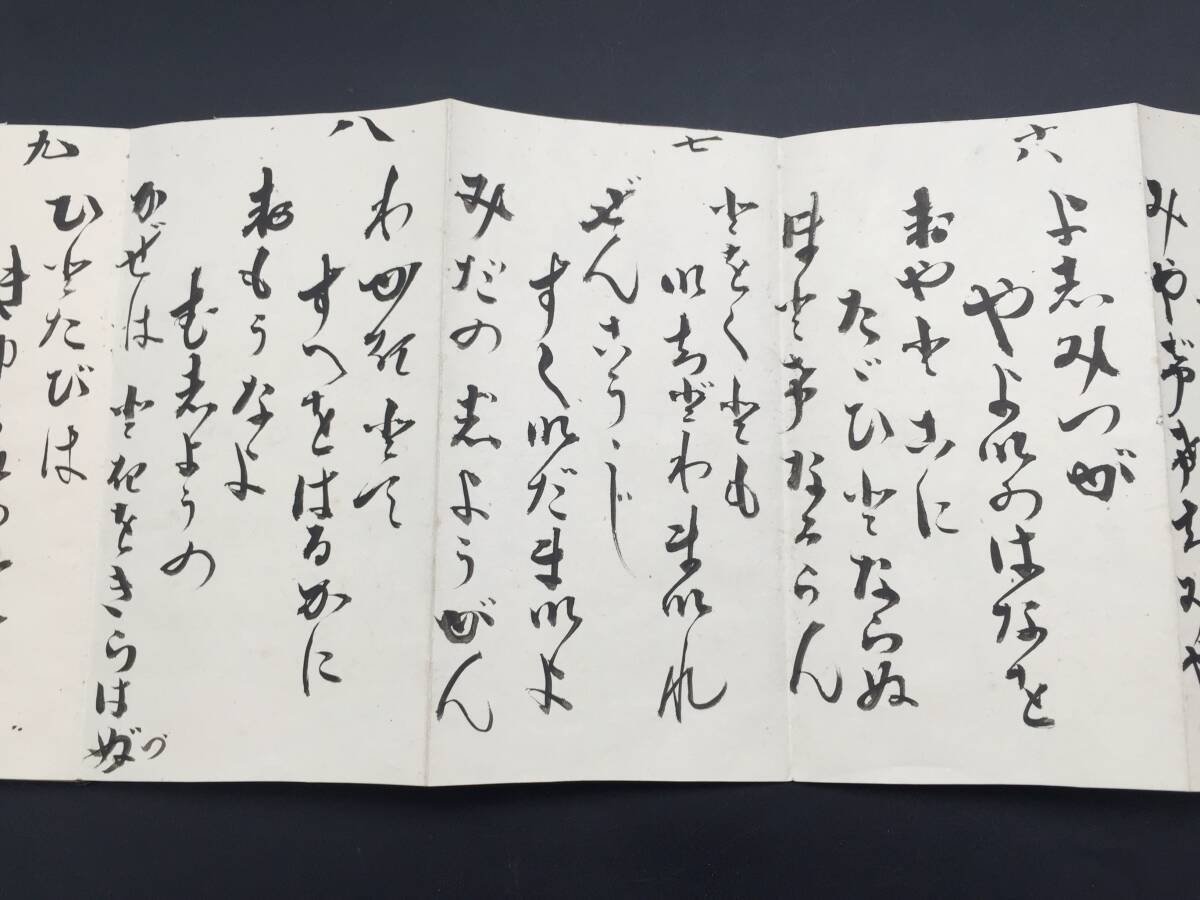 六
よしみつが
やよいのはなを
おやとこに
たゞひとならぬ
ほとけなるらん
七
とをくとも
いちどわまいれ
ぜんこうじ
すくいだまいよ
みだのしようがん
八
わかきとて
すへをはるかに
おもうなよ
むしようの
かぜはときをきらはず
づ
九
ひとたびは